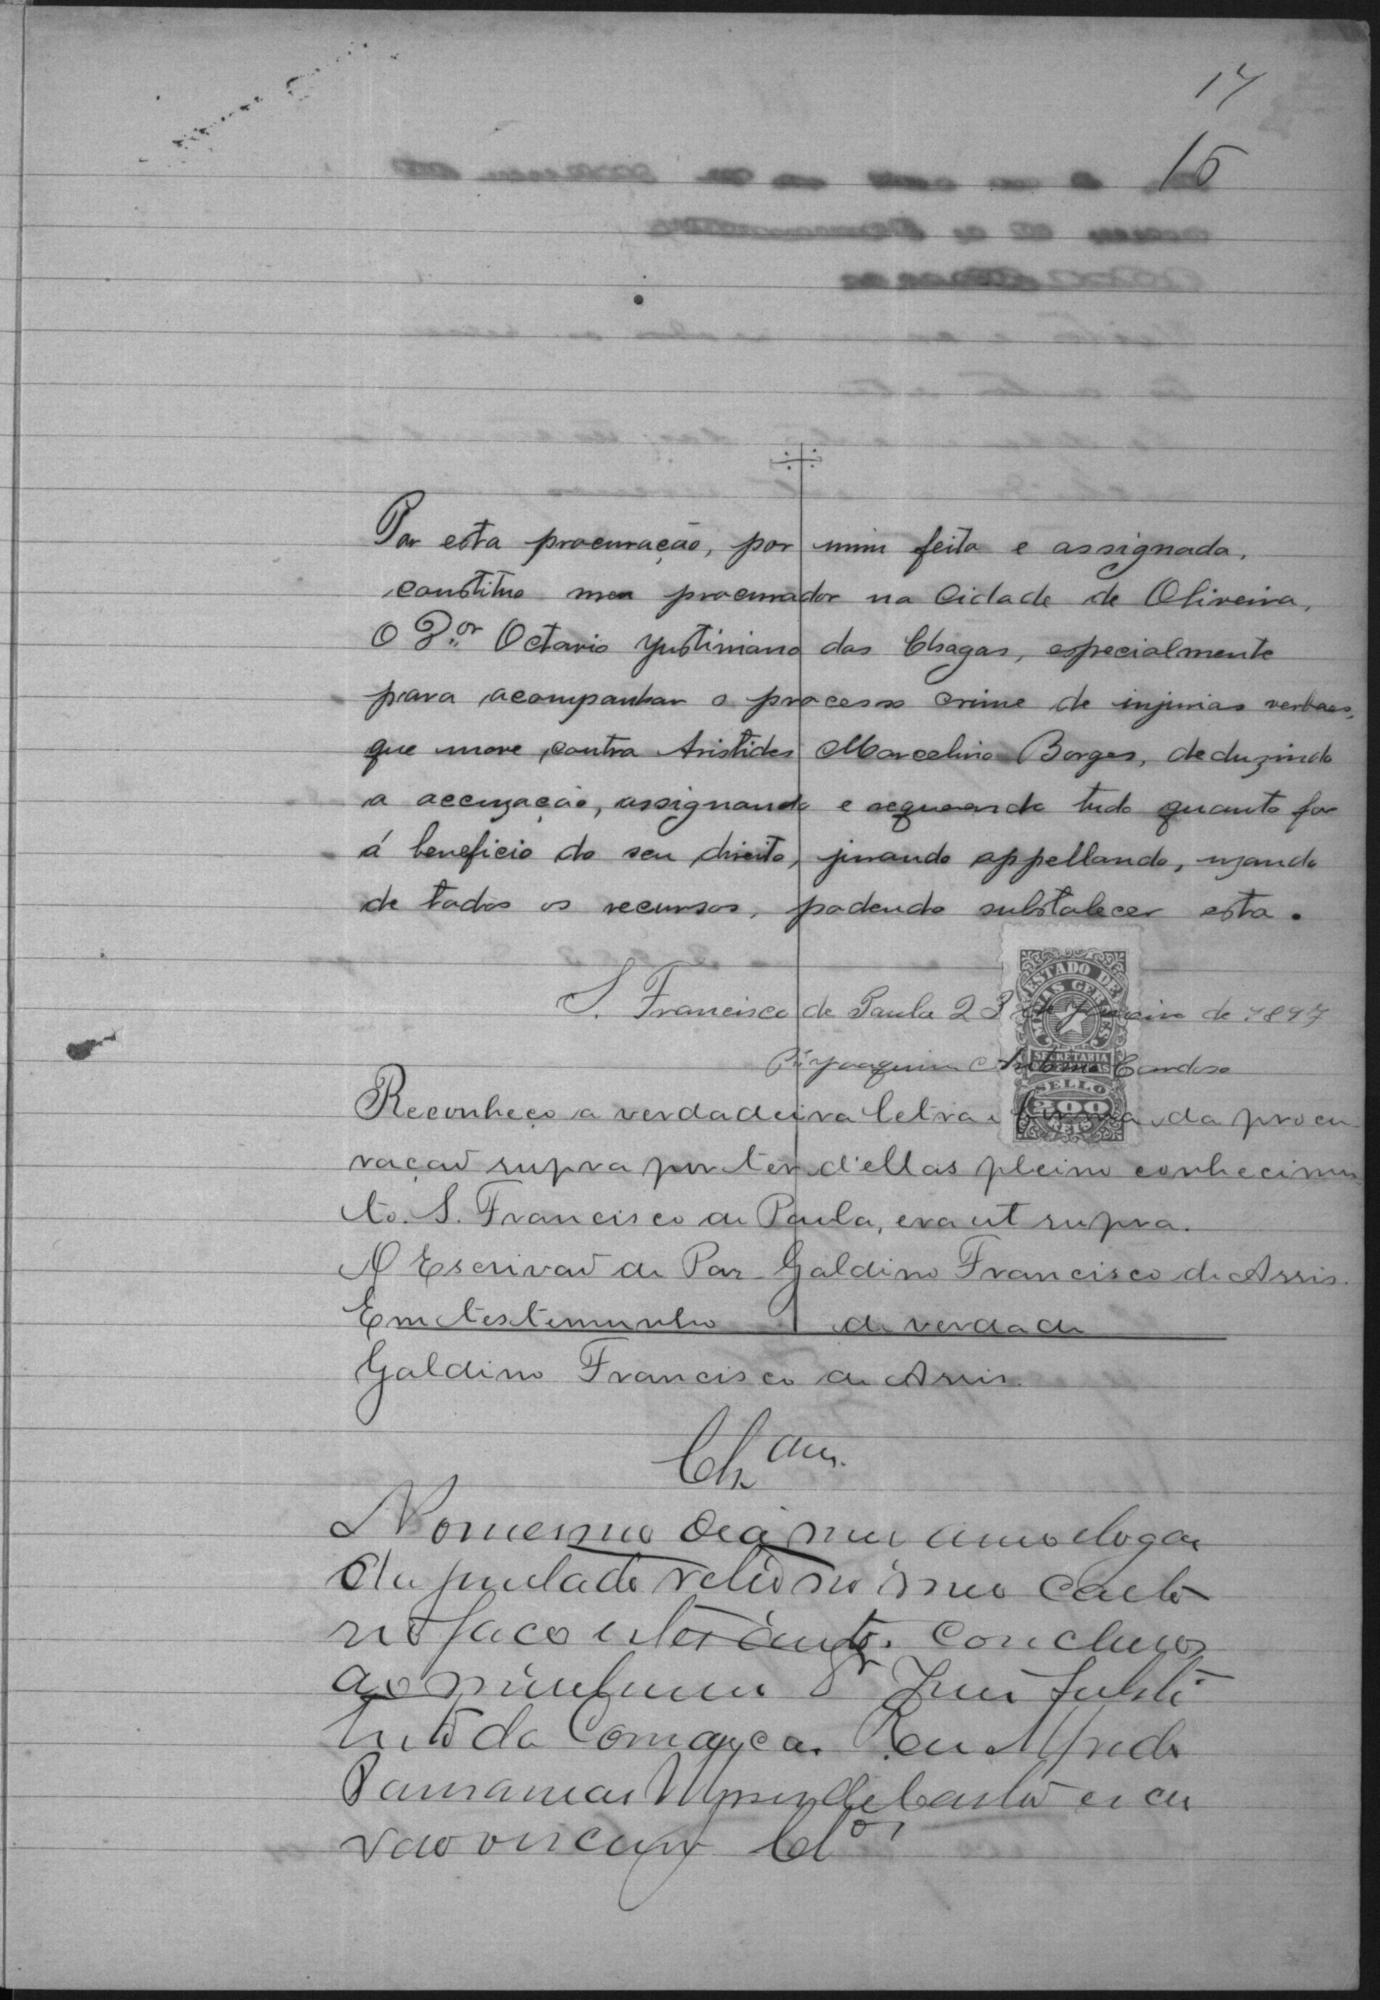 17
15
Por esta procuração, por mim feita e assignada,
constituo meu procurador na Cidade de Oliveira,
O Dor Octavio Justiniano das Chagas, especialmente
para acompanhar o processo crime de injurias verbaes,
que move contra Aristides Marcelino Borges, deduzindo
a accuzação, assignando e requerendo tudo quanto for
á beneficio do seu direito, jurando appellando, uzando
de todos os recursos, podendo substalecer esta.
S. Francisco de Paula 23 de Janeiro de 1897
ESTADO DE MINAS GERAES
SECRETARIA
SELLO
200
REIS
Pe Joaquim Antonio Cardoso
Reconheço a verdadeira letra e firma da procu
ração supra por ter d'ellas pleino conhecimen
to. S. Francisco de Paula, era ut supra.
O Escrivaõ de Paz Galdino Francisco de Assis.
Em testemunho de verdade
Galdino Francisco de Assis.
No mesmo dia mez anno e logar
no faço estes autos conclusos
ao Juiz Substi
tuto da Comarca. Eu Alfredo
de Castro escri
vão o escrevy